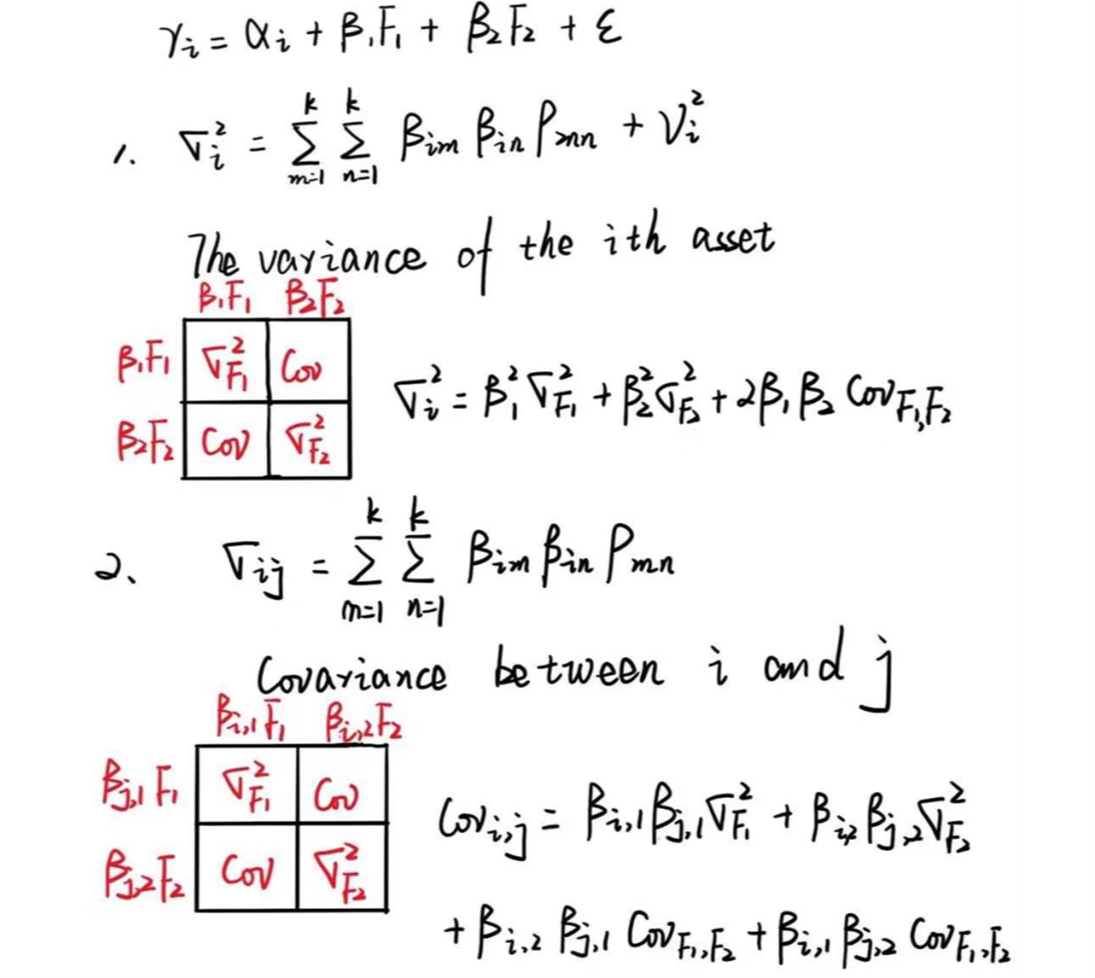 γi = αi + β1F1 + β2F2 + ε
1. σi² = Σ(m=1 to k) Σ(n=1 to k) βim βin ρmn + νi²
The variance of the ith asset
β1F1 β2F2
β1F1 σ²F1 Cov
β2F2 Cov σ²F2
σi² = β1²σ²F1 + β2²σ²F2 + 2β1β2 CovF1,F2
2、 σij = Σ(m=1 to k) Σ(n=1 to k) βim βin ρmn
Covariance between i and j
βi,1F1 βi,2F2
βj,1F1 σ²F1 Cov
βj,2F2 Cov σ²F2
Covi,j = βi,1βj,1σ²F1 + βi,2βj,2σ²F2
+ βi,2 βj,1 CovF1,F2 + βi,1βj,2 CovF1,F2